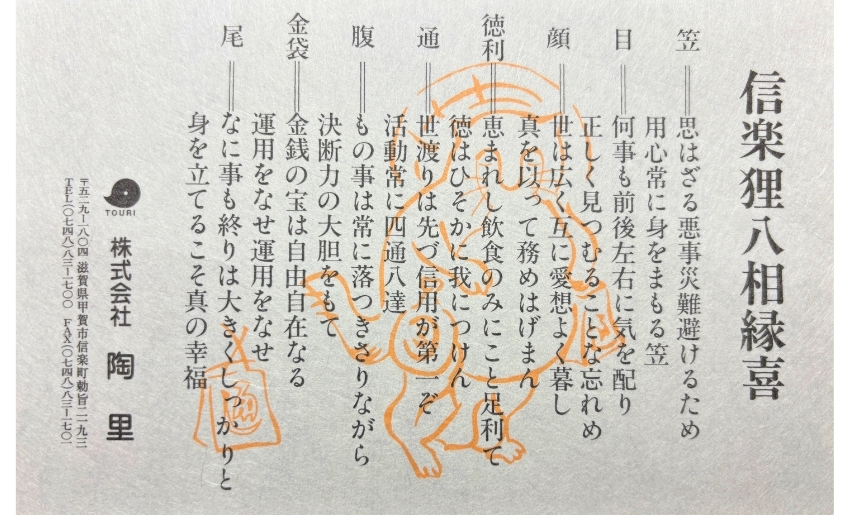 信楽狸八相縁喜
笠＝思はざる悪事災難避けるため
用心常に身をまもる笠
目＝何事も前後左右に気を配り
正しく見つむることな忘れめ
顔＝世は広く互に愛想よく暮し
真を以って務めはげまん
徳利＝恵まれし飲食のみにこと足利て
徳はひそかに我につけん
通＝世渡りは先づ信用が第一ぞ
活動常に四通八達
腹＝もの事は常に落つきさりながら
決断力の大胆をもて
金袋＝金銭の宝は自由自在なる
運用をなせ運用をなせ
尾＝なに事も終りは大きくしっかりと
身を立てるこそ真の幸福
TOURI
株式会社 陶里
〒五二九－一八〇四 滋賀県甲賀市信楽町勅旨二一九三
TEL(〇七四八)八三－一七〇〇 FAX(〇七四八)八三－一七〇一
通